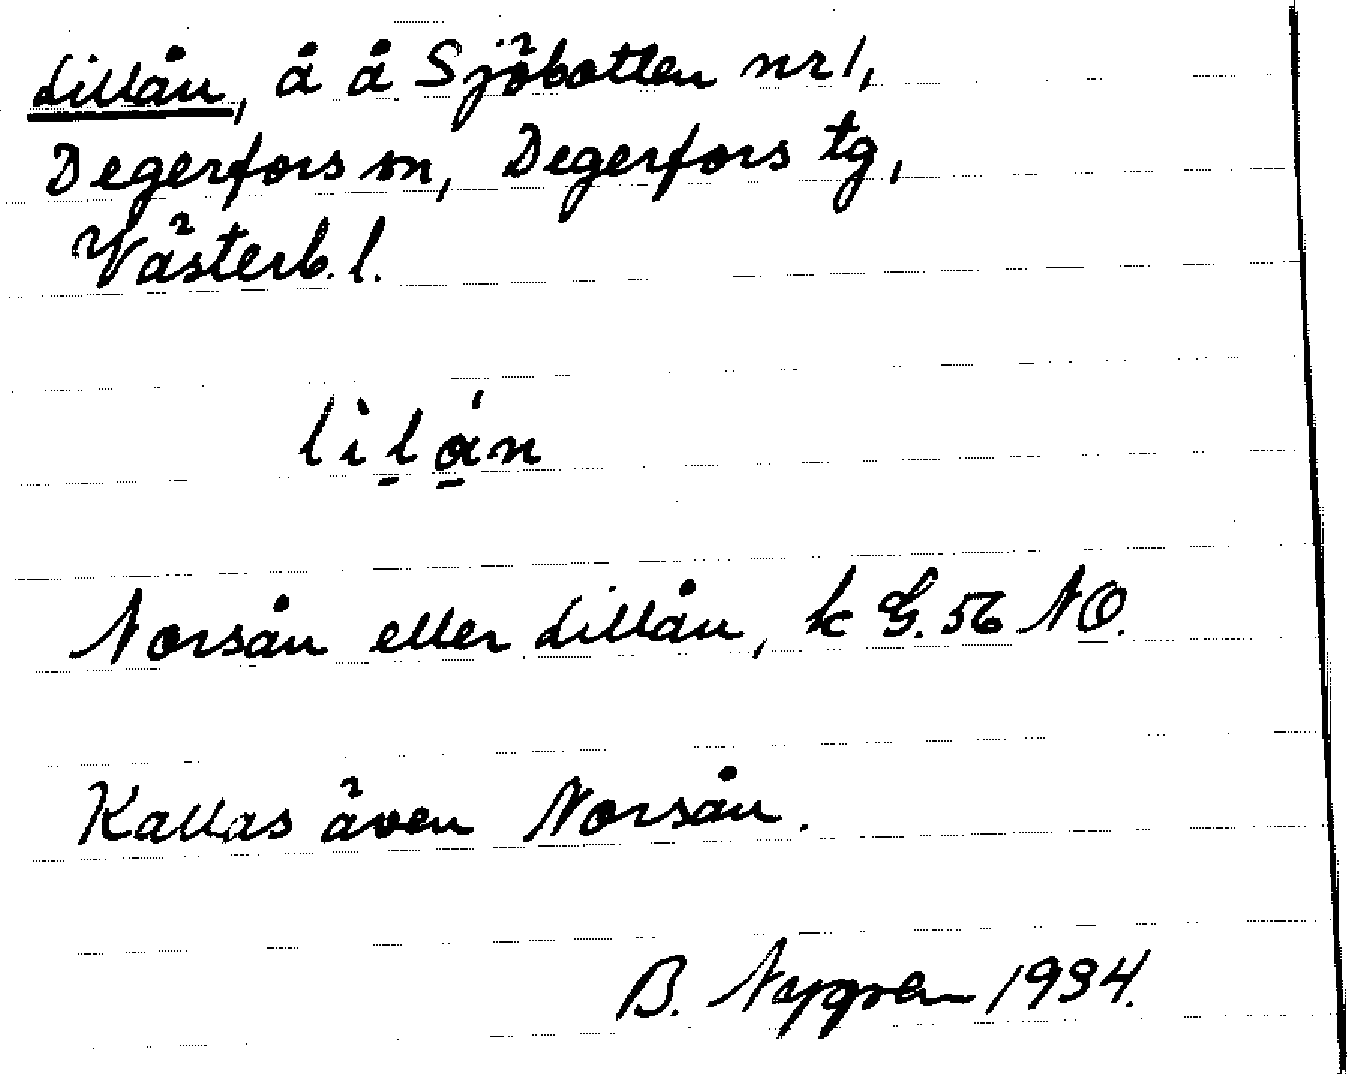 Lillån, å å Sjöbotten nr 1,
Degerfors sn, Degerfors tg,
Västerb. l.
lìlán
Norsån eller Lillån, k G. 56 NO.
Kallas även Norsån.
B. Nygren 1934.